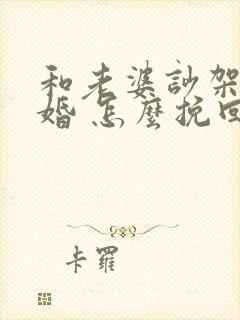 和老婆訬架
婚 怎麼挽回
卡羅